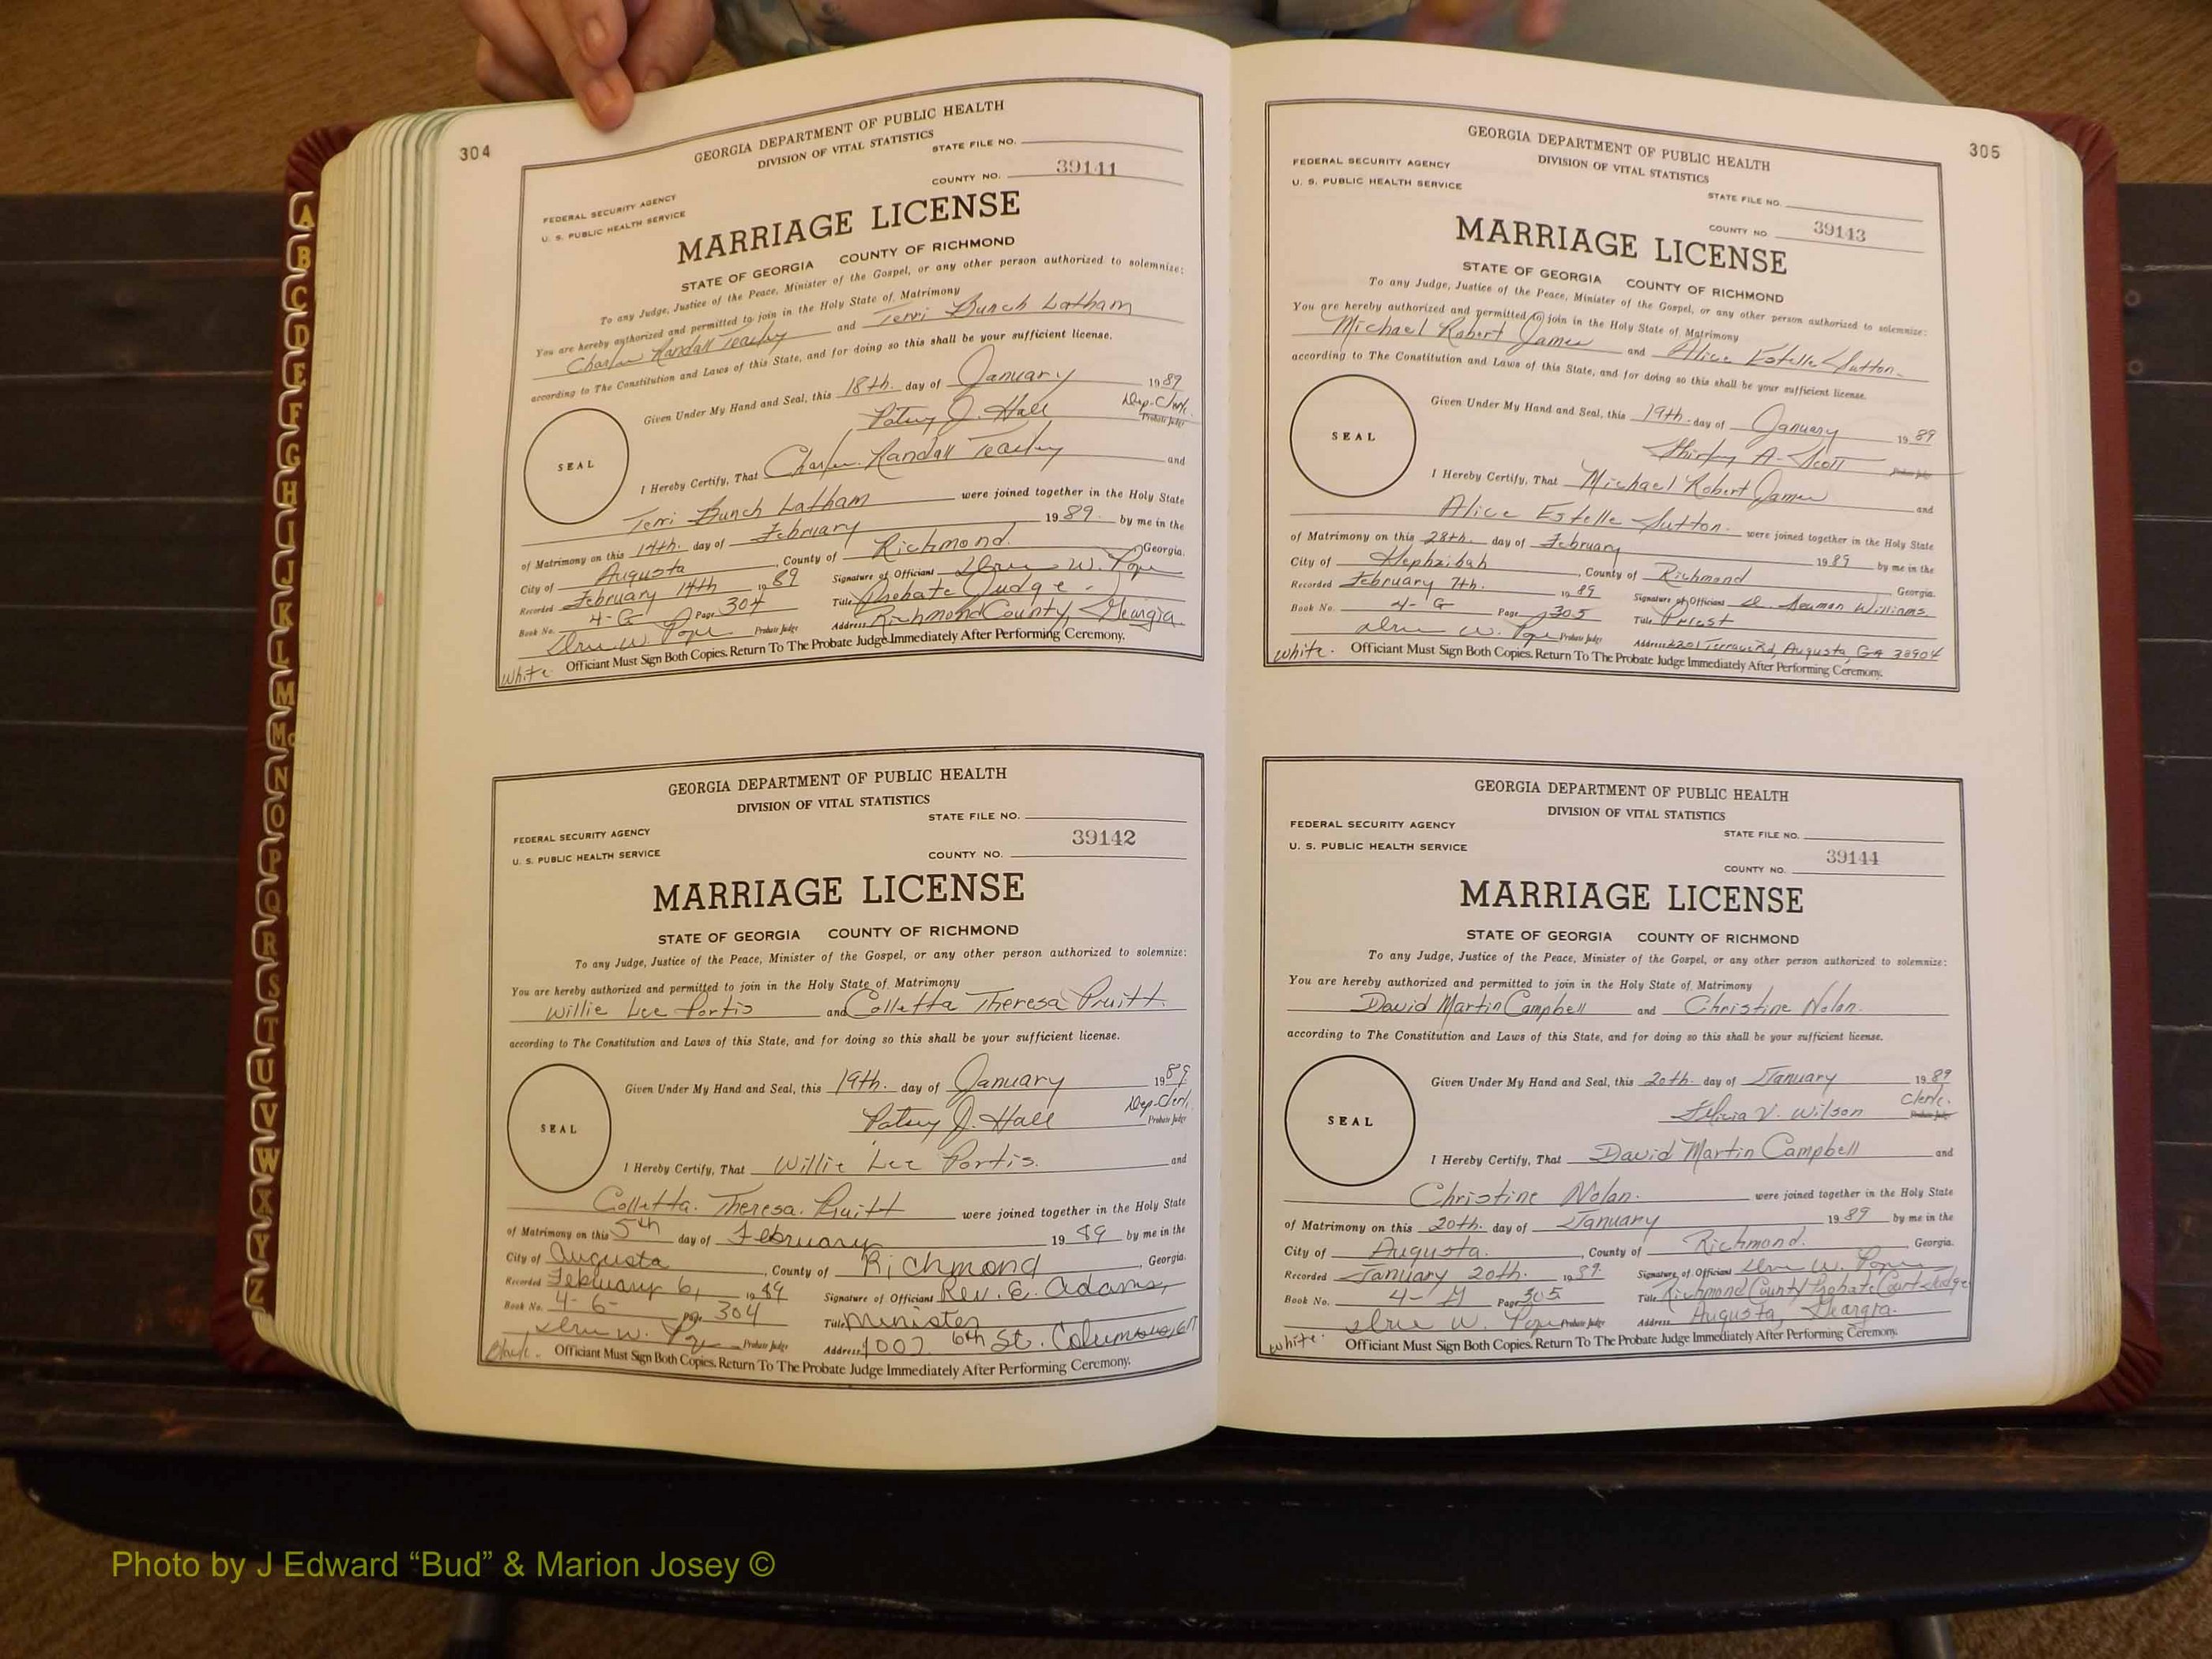 304
GEORGIA DEPARTMENT OF PUBLIC HEALTH
DIVISION OF VITAL STATISTICS
STATE FILE NO.
COUNTY NO. 39141
FEDERAL SECURITY AGENCY
U. S. PUBLIC HEALTH SERVICE
MARRIAGE LICENSE
STATE OF GEORGIA COUNTY OF RICHMOND
To any Judge, Justice of the Peace, Minister of the Gospel, or any other person authorized to solemnize:
You are hereby authorized and permitted to join in the Holy State of Matrimony
Charles Randall Teasley and Terri Bunch Latham
according to The Constitution and Laws of this State, and for doing so this shall be your sufficient license.
Given Under My Hand and Seal, this 18th. day of January 1989
Patsy J. Hall Dep-Clerk.
Probate Judge
SEAL
I Hereby Certify, That Charles Randall Teasley and
Terri Bunch Latham were joined together in the Holy State
of Matrimony on this 14th. day of February 1989. by me in the
City of Augusta, County of Richmond. Georgia.
Recorded February 14th 1989 Signature of Officiant W. Pope
Book No. 4-G Page 304 Title Probate Judge -
W. Pope Probate Judge Address Richmond County, Georgia
White. Officiant Must Sign Both Copies. Return To The Probate Judge Immediately After Performing Ceremony.
GEORGIA DEPARTMENT OF PUBLIC HEALTH
DIVISION OF VITAL STATISTICS
STATE FILE NO.
FEDERAL SECURITY AGENCY
U. S. PUBLIC HEALTH SERVICE
COUNTY NO. 39142
MARRIAGE LICENSE
STATE OF GEORGIA COUNTY OF RICHMOND
To any Judge, Justice of the Peace, Minister of the Gospel, or any other person authorized to solemnize:
You are hereby authorized and permitted to join in the Holy State of Matrimony
Willie Lee Portis and Colletta Theresa Pruitt
according to The Constitution and Laws of this State, and for doing so this shall be your sufficient license.
Given Under My Hand and Seal, this 19th. day of January 1989
Patsy J. Hall Dep-Clerk.
Probate Judge
SEAL
I Hereby Certify, That Willie Lee Portis. and
Colletta. Theresa. Pruitt were joined together in the Holy State
of Matrimony on this 5th day of February 1989 by me in the
City of Augusta, County of Richmond, Georgia.
Recorded February 6, 1989 Signature of Officiant Rev. E. Adams,
Book No. 4-G- Page 304 Title Minister
W. Pope Probate Judge Address 1007 6th St.
Black. Officiant Must Sign Both Copies. Return To The Probate Judge Immediately After Performing Ceremony.
305
GEORGIA DEPARTMENT OF PUBLIC HEALTH
DIVISION OF VITAL STATISTICS
FEDERAL SECURITY AGENCY
U. S. PUBLIC HEALTH SERVICE
STATE FILE NO.
COUNTY NO. 39143
MARRIAGE LICENSE
STATE OF GEORGIA COUNTY OF RICHMOND
To any Judge, Justice of the Peace, Minister of the Gospel, or any other person authorized to solemnize:
You are hereby authorized and permitted to join in the Holy State of Matrimony
Michael Robert James and Alice Estelle Sutton.
according to The Constitution and Laws of this State, and for doing so this shall be your sufficient license.
Given Under My Hand and Seal, this 19th. day of January 1989
Shirley A. Scott Probate Judge
SEAL
I Hereby Certify, That Michael Robert James and
Alice Estelle Sutton. were joined together in the Holy State
of Matrimony on this 28th. day of February 1989 by me in the
City of Hephzibah, County of Richmond Georgia.
Recorded February 7th. 1989 Signature of Officiant Williams.
Book No. 4-G Page 305 Title Priest
W. Pope Probate Judge Address 2201 Terrace Rd, Augusta, GA 30904
White. Officiant Must Sign Both Copies. Return To The Probate Judge Immediately After Performing Ceremony.
GEORGIA DEPARTMENT OF PUBLIC HEALTH
DIVISION OF VITAL STATISTICS
FEDERAL SECURITY AGENCY
STATE FILE NO.
U. S. PUBLIC HEALTH SERVICE
COUNTY NO. 39144
MARRIAGE LICENSE
STATE OF GEORGIA COUNTY OF RICHMOND
To any Judge, Justice of the Peace, Minister of the Gospel, or any other person authorized to solemnize:
You are hereby authorized and permitted to join in the Holy State of Matrimony
David Martin Campbell and Christine Nolan.
according to The Constitution and Laws of this State, and for doing so this shall be your sufficient license.
Given Under My Hand and Seal, this 20th. day of January 1989
V. Wilson Clerk.
Probate Judge
SEAL
I Hereby Certify, That David Martin Campbell and
Christine Nolan. were joined together in the Holy State
of Matrimony on this 20th. day of January 1989 by me in the
City of Augusta., County of Richmond., Georgia.
Recorded January 20th. 1989. Signature of Officiant W. Pope
Book No. 4- Page 305 Title Richmond County Probate Court Judge
W. Pope Probate Judge Address Augusta, Georgia.
White. Officiant Must Sign Both Copies. Return To The Probate Judge Immediately After Performing Ceremony.
A
B
C
D
E
F
G
H
I
J
K
L
M
Mc
N
O
P
Q
R
S
T
U
V
W
X
Y
Z
Photo by J Edward “Bud” & Marion Josey ©